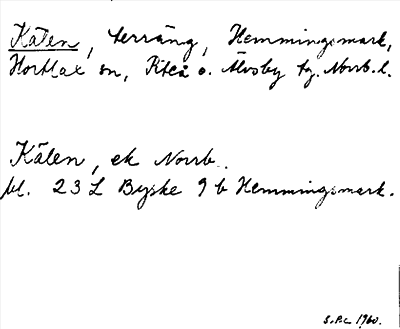 Kälen, terräng, Hemmingsmark,
Hortlax sn, Piteå o. Älvsby tg. Norrb. l.
Kälen, ek Norrb.
bl. 23 L Byske 9 b Hemmingsmark.
1960.